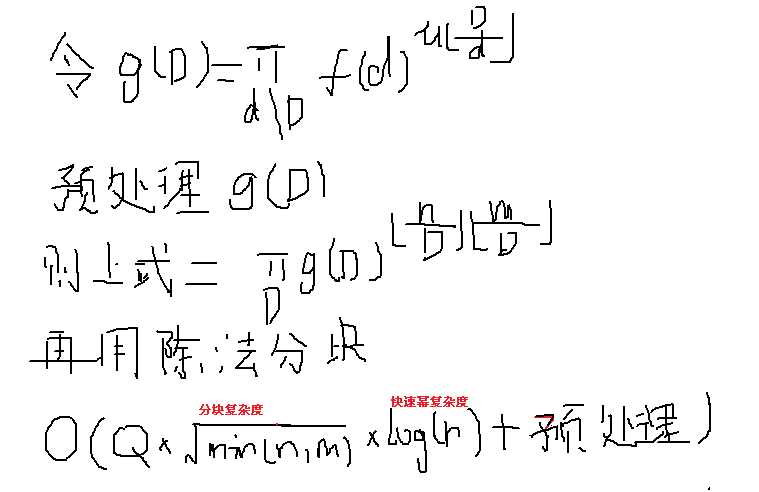 令 g(D)=π_{d\D} f(d)^{u[D/d]}
预处理 g(D)
则上式= π_D g(D)^{⌊n/D⌋⌊m/D⌋}
再用除法分块
分块复杂度 快速幂复杂度
O(Q*√min(n,m) * log(n)+预处理)